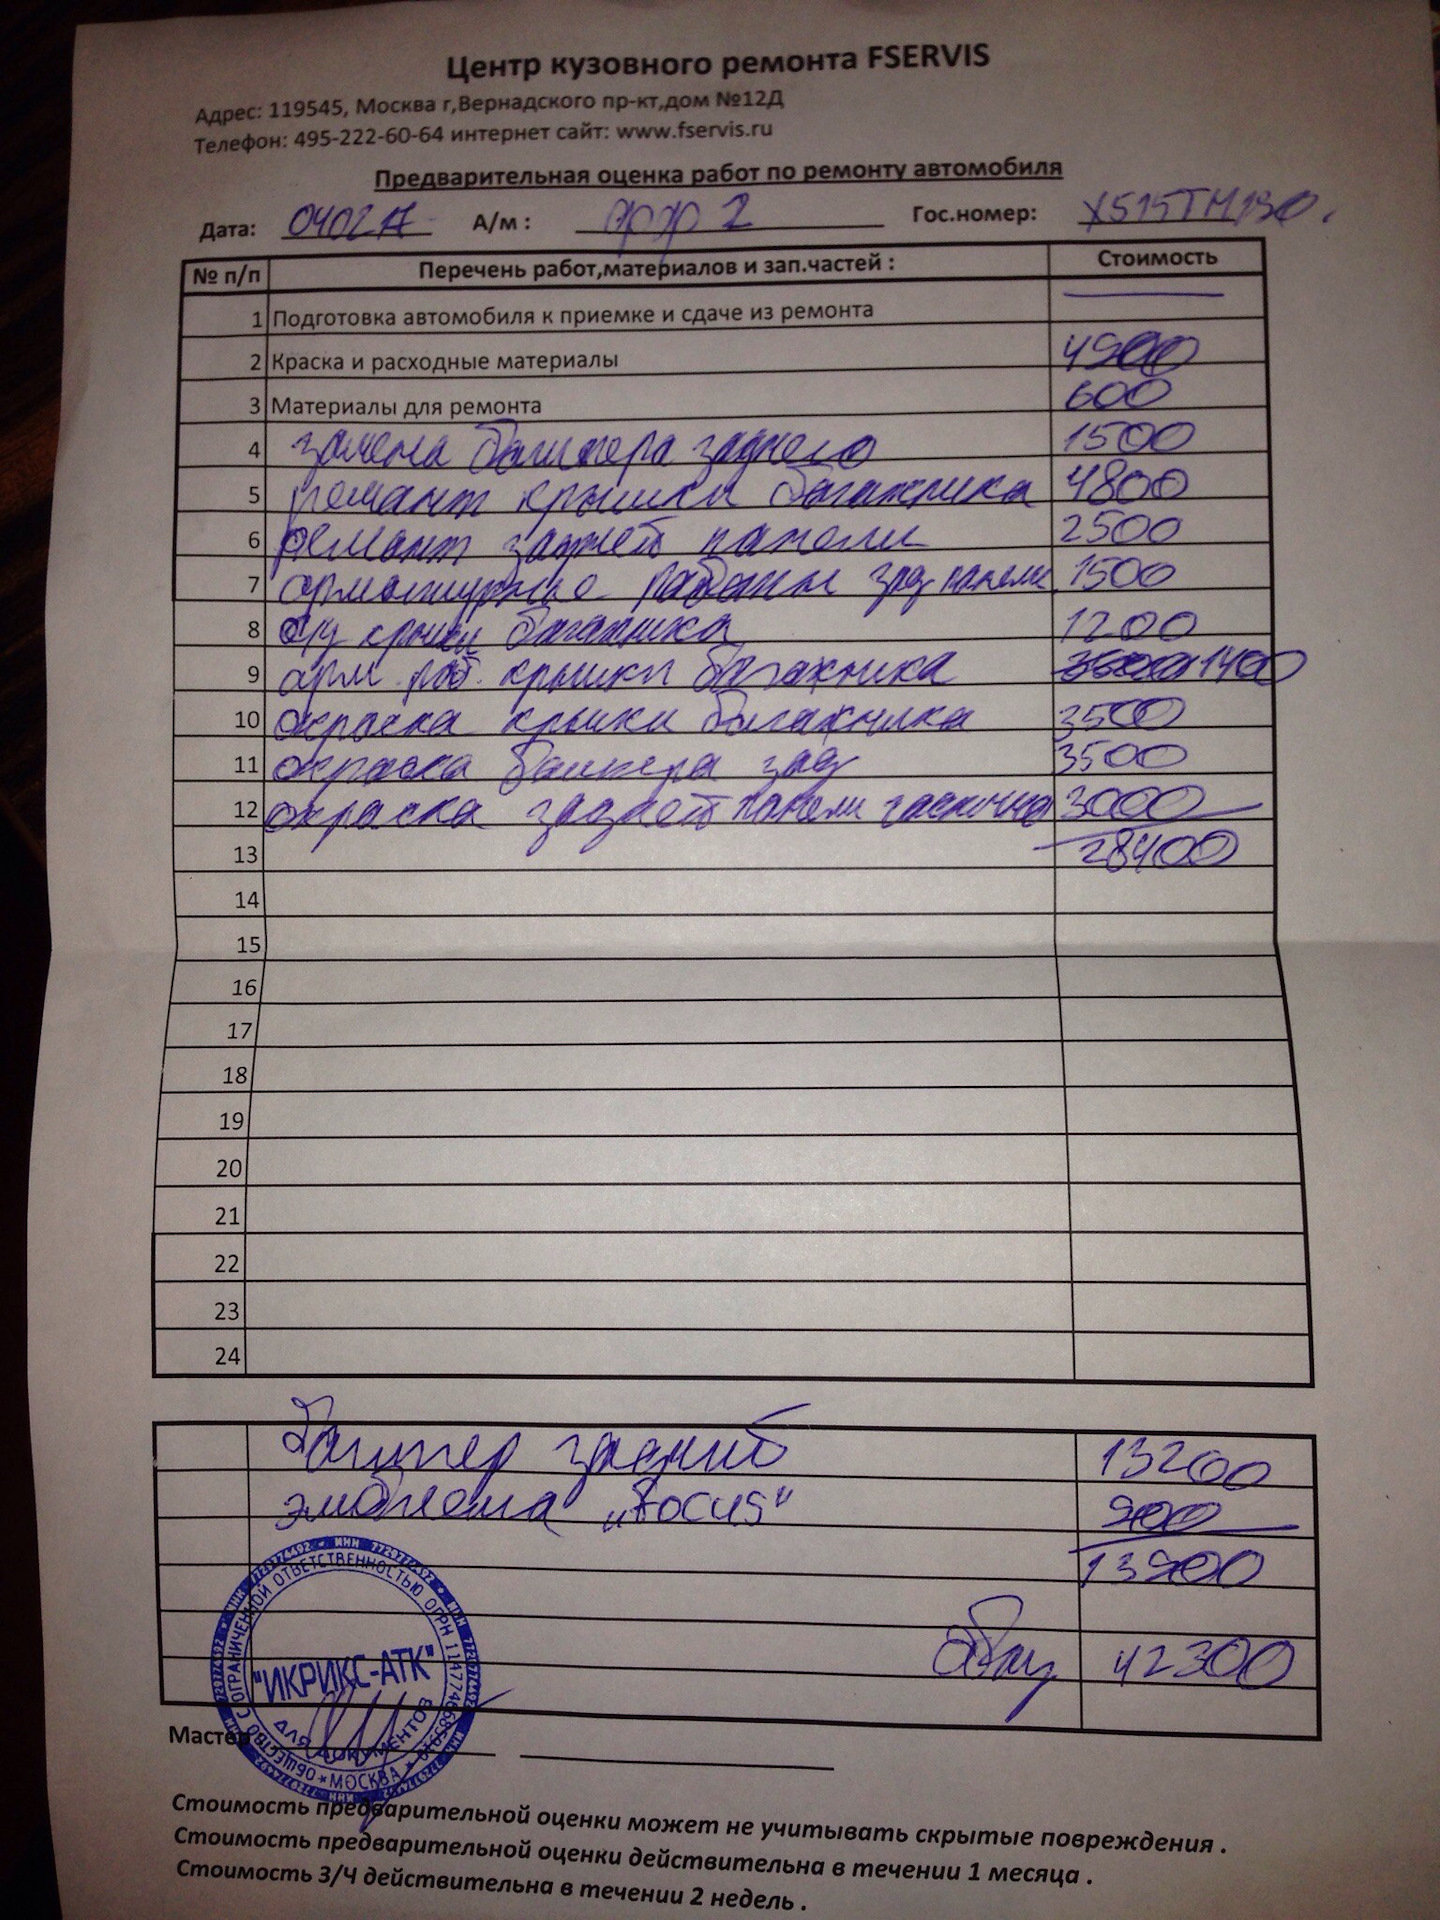 Центр кузовного ремонта FSERVIS
Адрес: 119545, Москва г,Вернадского пр-кт,дом №12Д
Телефон: 495-222-60-64 интернет сайт: www.fservis.ru
Предварительная оценка работ по ремонту автомобиля
Дата: 040217 А/м : фф 2 Гос.номер: Х515ТМ190.
№ п/п Перечень работ,материалов и зап.частей : Стоимость
1 Подготовка автомобиля к приемке и сдаче из ремонта
2 Краска и расходные материалы 4900
3 Материалы для ремонта 600
4 замена бампера заднего 1500
5 ремонт крышки багажника 4800
6 ремонт задней панели 2500
7 арматурные работы зад панели 1500
8 с/у крышки багажника 1200
9 арм. раб. крышки багажника 1400
10 окраска крышки багажника 3500
11 окраска бампера зад 3500
12 окраска задней панели частично 3000
13 28400
14
15
16
17
18
19
20
21
22
23
24
бампер задний 13200
эмблема „Focus"
13900
42300
ОБЩЕСТВО С ОГРАНИЧЕННОЙ ОТВЕТСТВЕННОСТЬЮ
"ИКРИКС-АТК"
ДЛЯ ДОКУМЕНТОВ
* МОСКВА *
Мастер
Стоимость предварительной оценки может не учитывать скрытые повреждения .
Стоимость предварительной оценки действительна в течении 1 месяца .
Стоимость З/Ч действительна в течении 2 недель .